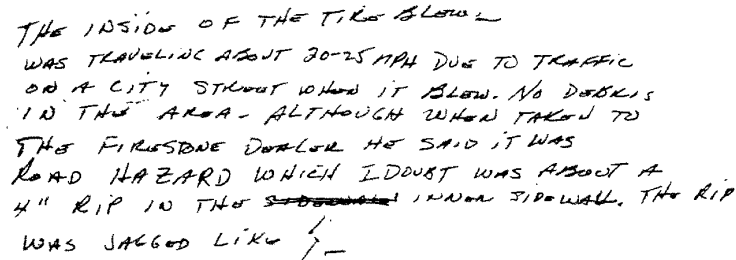 THE INSIDE OF THE TIRE BLEW.
WAS TRAVELING ABOUT 20-25 MPH DUE TO TRAFFIC
ON A CITY STREET WHEN IT BLEW. NO DEBRIS
IN THE AREA - ALTHOUGH WHEN TAKEN TO
THE FIRESTONE DEALER HE SAID IT WAS
ROAD HAZARD WHICH I DOUBT WAS ABOUT A
4" RIP IN THE INNER SIDEWALL. THE RIP
WAS JAGGED LIKE